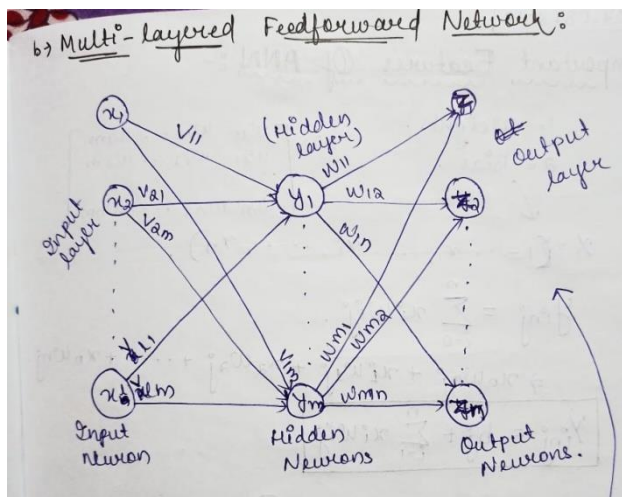 b→ Multi-layered Feedforward Network:
x1
V11
(Hidden
layer)
W11
Z1
Output
layer
x2
V21
V2m
y1
W12
Z2
Input
layer
W1n
Vl1
V1m
Wm1
Wm2
xl
Vlm
ym
Wmn
Input
neuron
Hidden
Neurons
Output
Neurons.